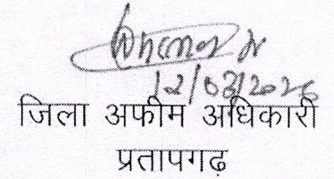 12/03/2026
जिला अफीम अधिकारी
प्रतापगढ़